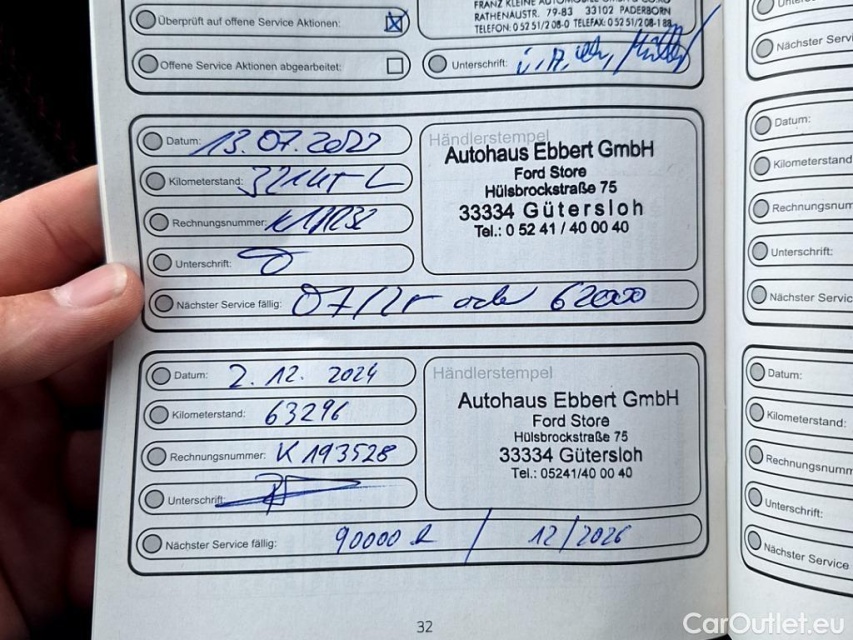 FRANZ KLEINE
RATHENAUSTR. 79-83 33102 PADERBORN
TELEFON: 0 52 51/2 08-0 TELEFAX: 0 52 51/2 08-1 88
Überprüft auf offene Service Aktionen:
Offene Service Aktionen abgearbeitet:
Unterschrift:
Datum: 13.07.2022
Händlerstempel
Autohaus Ebbert GmbH
Ford Store
Hülsbrockstraße 75
33334 Gütersloh
Tel.: 0 52 41 / 40 00 40
Kilometerstand:
Rechnungsnummer:
Unterschrift:
Nächster Service fällig: oder 62000
Datum: 2.12.2024
Händlerstempel
Autohaus Ebbert GmbH
Ford Store
Hülsbrockstraße 75
33334 Gütersloh
Tel.: 05241/40 00 40
Kilometerstand: 63296
Rechnungsnummer: K 193528
Unterschrift:
Nächster Service fällig: 90000 / 12/2026
32
Nächster Servi
Datum:
Kilometerstand
Rechnungsnum
Unterschrift:
Nächster Servic
Datum:
Kilometerstand:
Rechnungsnumm
Unterschrift:
Nächster Service
CarOutlet.eu